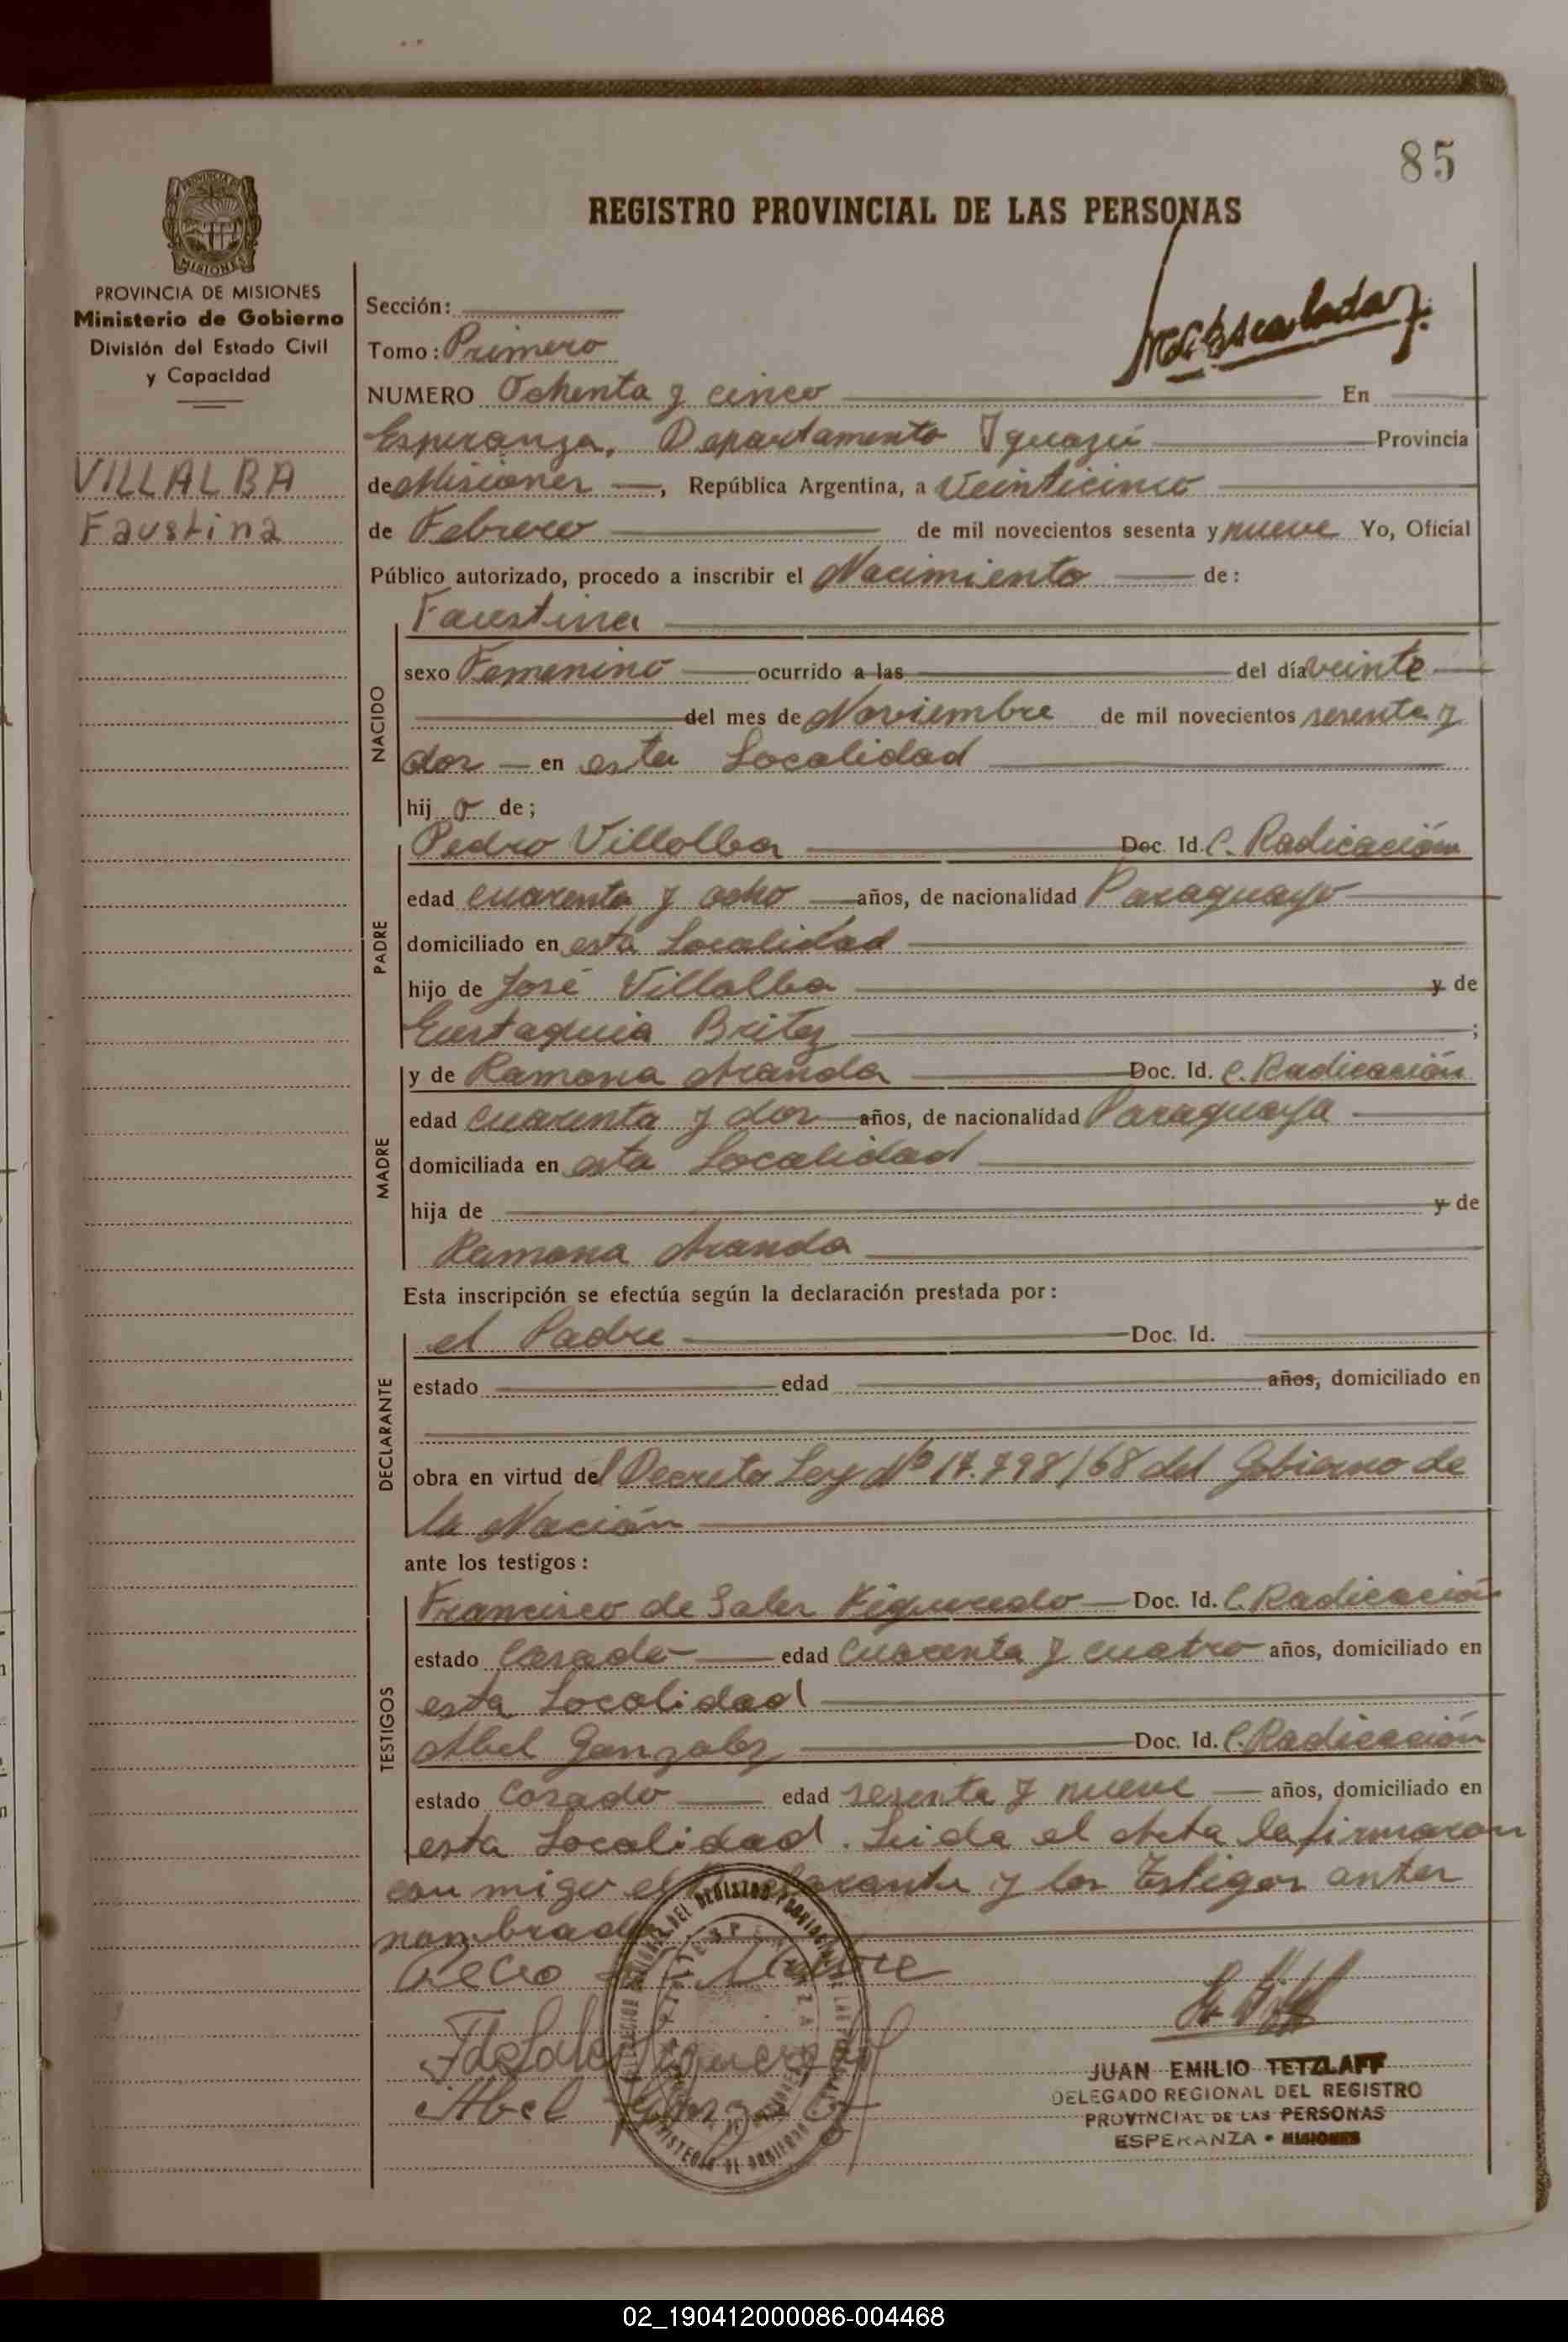 85
REGISTRO PROVINCIAL DE LAS PERSONAS
PROVINCIA DE MISIONES
Ministerio de Gobierno
División del Estado Civil
y Capacidad
VILLALBA
Faustina
Sección:
Tomo: Primero
NUMERO Ochenta y cinco En
Esperanza, Departamento Iguazú Provincia
de Misiones, República Argentina, a Veinticinco
de Febrero de mil novecientos sesenta y nueve Yo, Oficial
Público autorizado, procedo a inscribir el Nacimiento de:
NACIDO
Faustina
sexo Femenino ocurrido a las del día veinte
del mes de Noviembre de mil novecientos sesenta y
dos en esta Localidad
hij a de;
PADRE
Pedro Villalba Doc. Id. C. Radicación
edad cuarenta y ocho años, de nacionalidad Paraguayo
domiciliado en esta Localidad
hijo de José Villalba y de
Eustaquia Britez ;
MADRE
y de Ramona Aranda Doc. Id. C. Radicación
edad cuarenta y dos años, de nacionalidad Paraguaya
domiciliada en esta Localidad
hija de y de
Ramona Aranda
Esta inscripción se efectúa según la declaración prestada por:
DECLARANTE
el Padre Doc. Id.
estado edad años, domiciliado en
obra en virtud del Decreto Ley Nº 17.798/68 del Gobierno de
la Nación
ante los testigos:
TESTIGOS
Francisco de Sales Figueredo Doc. Id. C. Radicación
estado Casado edad cuarenta y cuatro años, domiciliado en
esta Localidad
Abel Gonzalez Doc. Id. C. Radicación
estado Casado edad sesenta y nueve años, domiciliado en
esta Localidad. Leida el Acta la firmaron
con migo el y los Testigos antes
Abel
JUAN EMILIO TETZLAFF
DELEGADO REGIONAL DEL REGISTRO
PROVINCIAL DE LAS PERSONAS
ESPERANZA - MISIONES
02_190412000086-004468